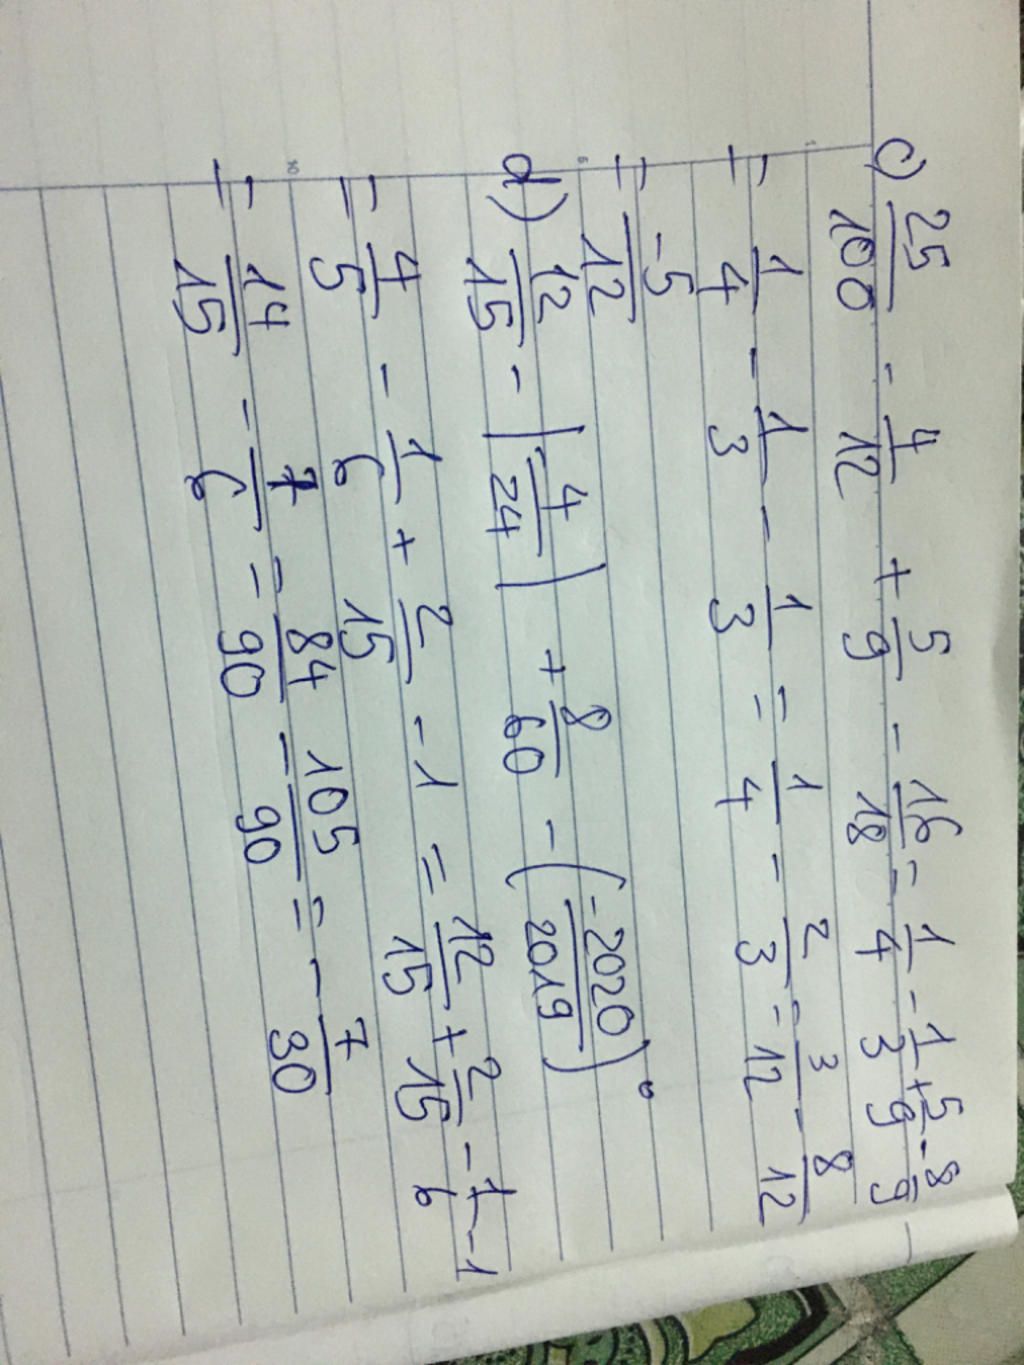 c) 25/100 - 4/12 + 5/9 - 16/18 = 1/4 - 1/3 + 5/9 - 8/9
= 1/4 - 1/3 - 1/3 = 1/4 - 2/3 = 3/12 - 8/12
= -5/12
d) 12/15 - |4/24| + 8/60 - (-2020/2019)⁰
= 4/5 - 1/6 + 2/15 - 1 = 12/15 + 2/15 - 1/6 - 1
= 14/15 - 7/6 = 84/90 - 105/90 = - 7/30